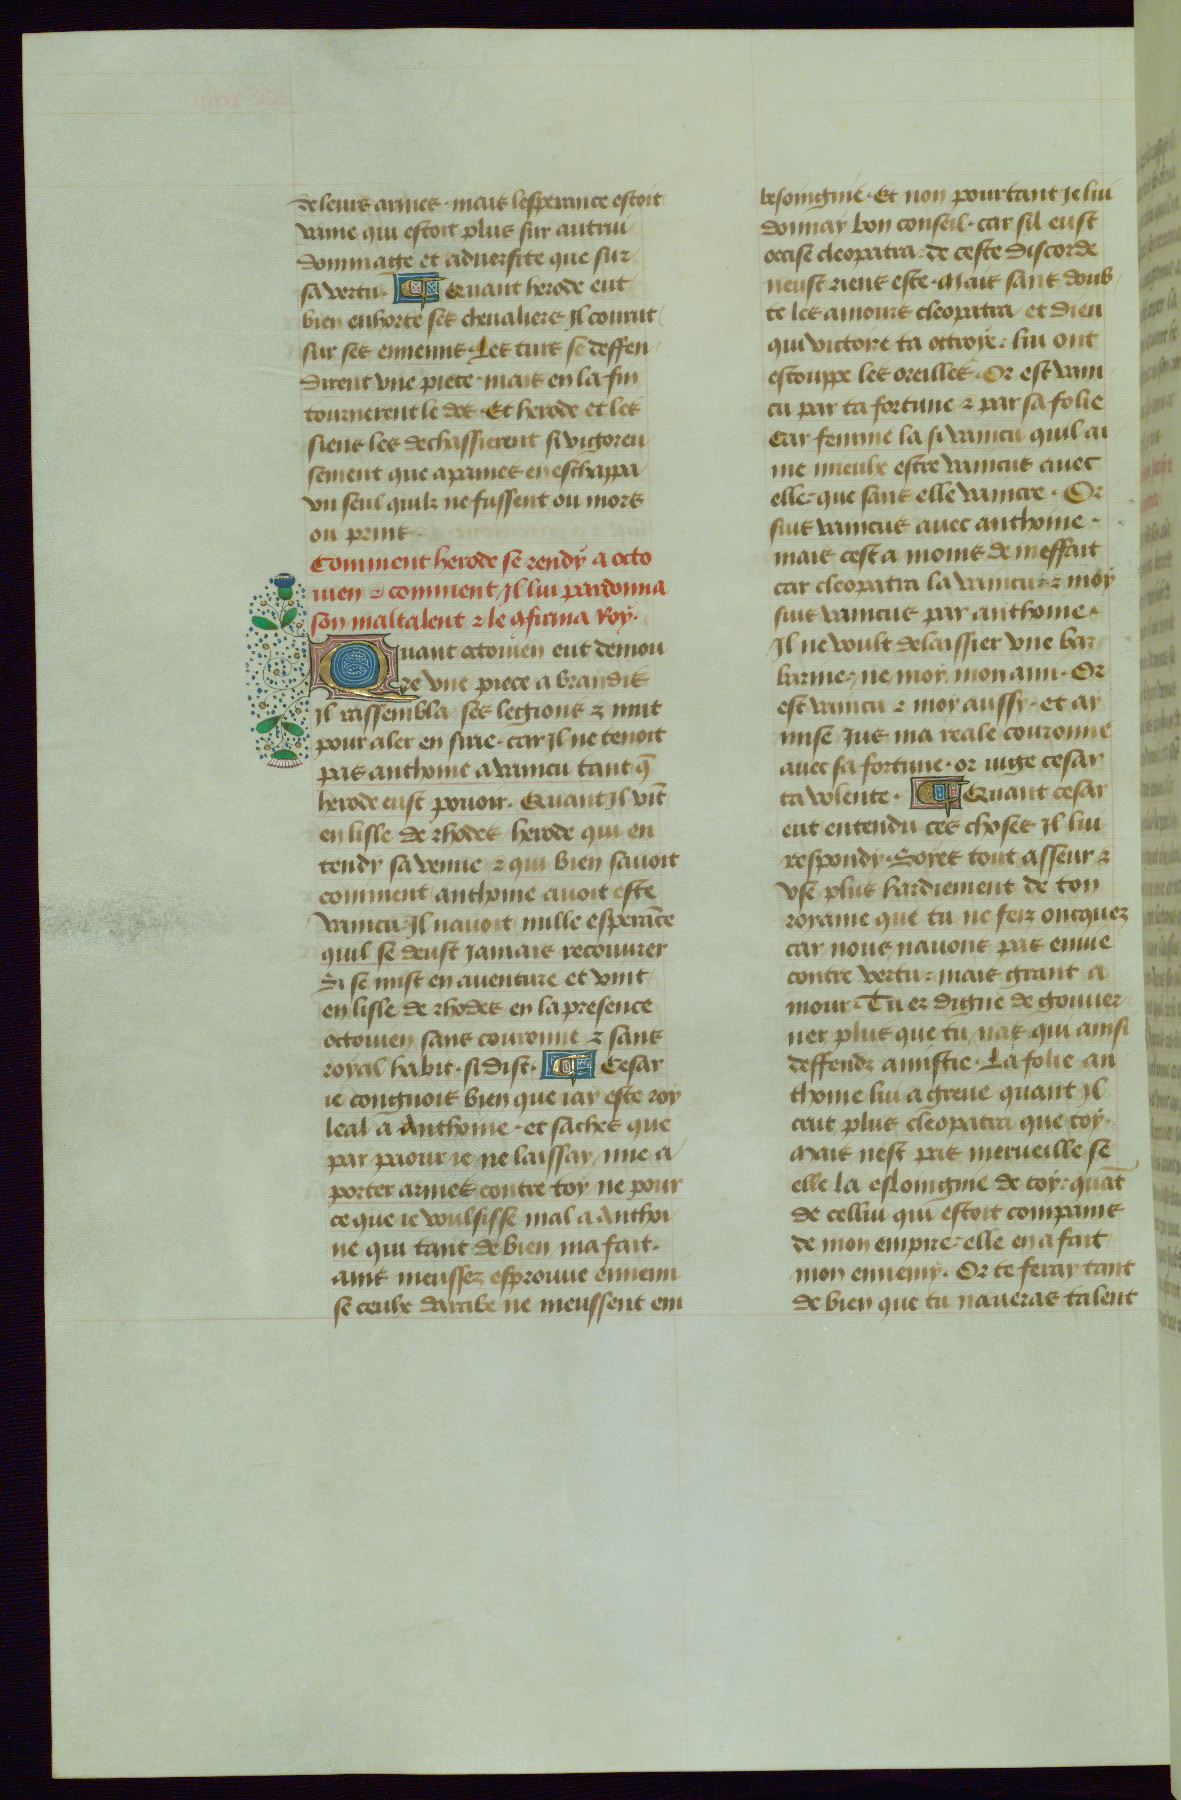 de leurs armes · mais lesperance estoit
vaine qui estoit plus sur autrui
dommaige et aduersite que sur
sa vertu · Quant herode eut
bien enhorte ses cheualiers Il courut
sur ses ennemis · Les turs se deffen
dirent vne piece · mais en la fin
tournerent le dos · Et herode et les
siens les dechassierent si vigoreu
sement que a paines en eschapa
vn seul quilz ne fussent ou mors
ou prins ·
Comment herode se rendy a octo
uien ⁊ comment Il lui pardonna
son maltalent ⁊ le ꝯferma Roy ·
Quant octouien eut demou
re vne piece a brandis
Il rassembla ses legions ⁊ mut
pour aler en surie · car Il ne tenoit
pas anthoine a vaincu tant q̄
herode eust pouoir · Quant Il vīt
en lisle de rhodes herode qui en
tendy sa venue ⁊ qui bien sauoit
comment anthoine auoit este
vaincu · Il nauoit nulle esperāce
quil se deust Jamais recouurer
Si se mist en auenture et vint
en lisle de rhodes en la presence
octouien sans couronne ⁊ sans
royal habit · si dist · Cesar
ie congnois bien que iay este roy
leal a Anthoine · et saches que
par paour ie ne laissay mie a
porter armes contre toy ne pour
ce que ie voulsisse mal a Anthoi
ne qui tant de bien ma fait ·
ains meussez esprouue ennemi
se ceulx darabe ne meussent em
besoingnie · Et non pourtant Je lui
donnay bon conseil · car sil eust
occise cleopatra · de ceste discorde
neust riens este · Mais sans doub
te les amours cleopatra et dieu
qui victoire ta ottroye · lui ont
estouppe les oreilles · Or est vain
cu par ta fortune ⁊ par sa folie
Car femme la si vaincu quil ai
me mieulx estre vaincus auec
elle · que sans elle vaincre · Or
suis vaincus auec anthoine ·
mais cest a moins de meffait
car cleopatra la vaincu · ⁊ moy
suis vaincus par anthoine ·
Il ne voult delaissier vne bar
barine · ne moy mon ami · Or
est vaincu ⁊ moy aussy · et ay
mise Jus ma reale couronne
auec sa fortune · or iuge cesar
ta volente · Quant cesar
eut entendu ces choses Il lui
respondy · Soyes tout asseur ⁊
vse plus hardiement de ton
royame que tu ne feiz oncquez
car nous nauons pas enuie
contre vertu · mais grant a
mour · Tu es digne de gouuer
ner plus que tu nas qui ainsi
deffendz amistie · La folie an
thoine lui a greue quant Il
crut plus cleopatra que toy ·
Mais nest pas merueille se
elle la eslongnie de toy · quāt
de cellui qui estoit compains
de mon empire · elle en a fait
mon ennemy · Or te feray tant
de bien que tu naueras talent